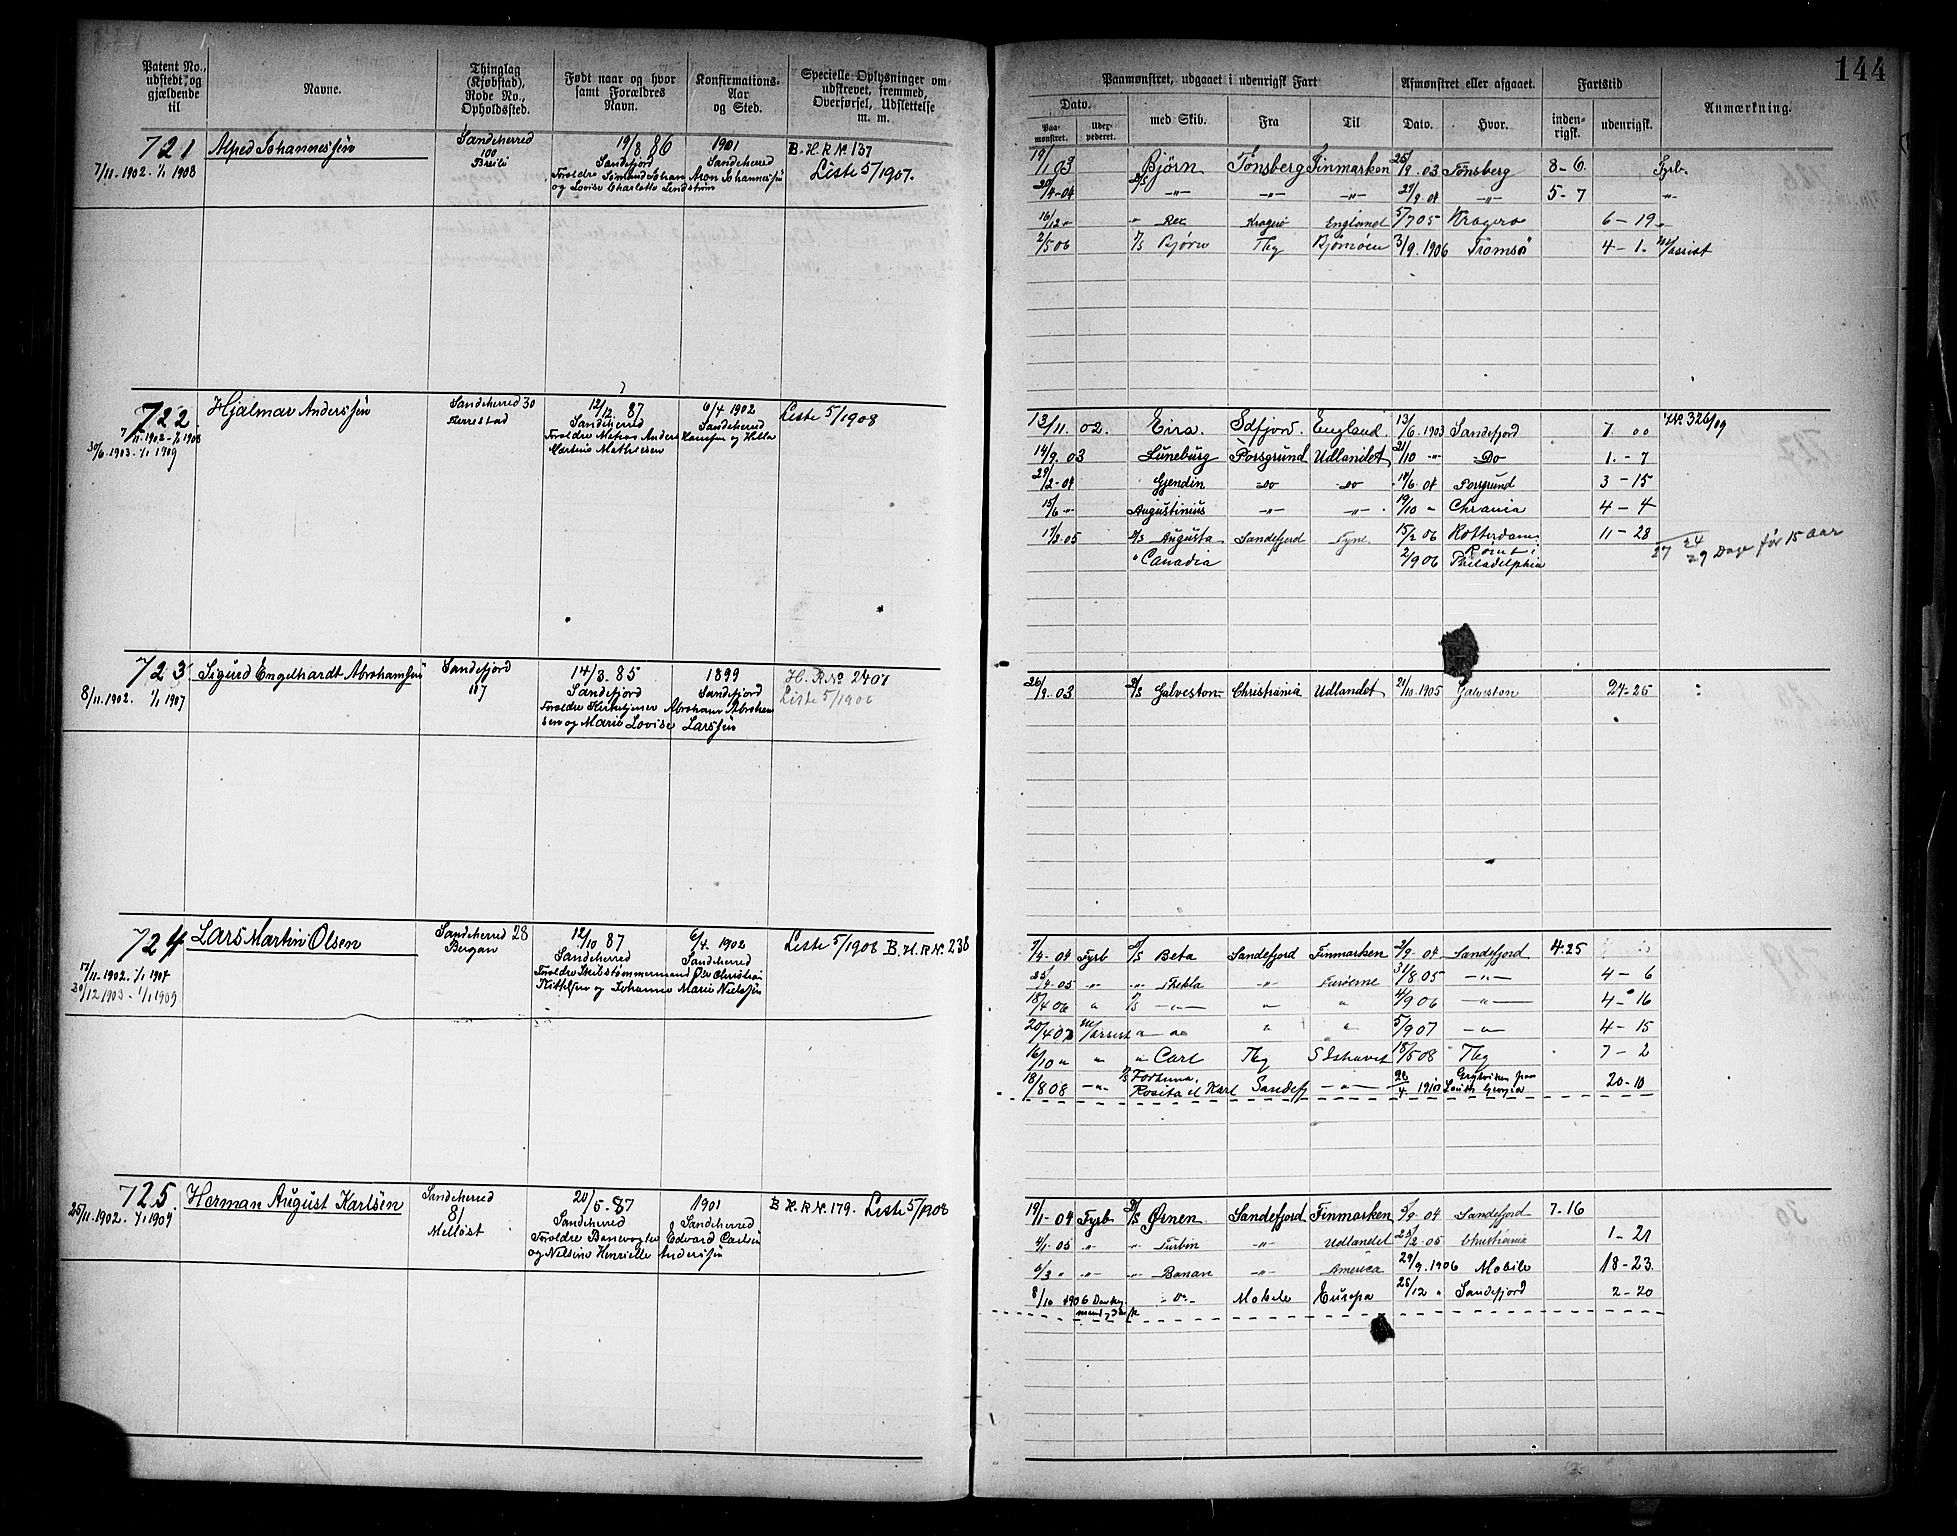 144
Patent No., udstedt og gjældende til
Navne.
Thinglag (Kjøbstad), Rode No., Opholdssted.
Født naar og hvor samt Forældres Navn.
Konfirmations-Aar og Sted.
Specielle Oplysninger om udskrevet, fremmed, Overførsel, Udslettelse m. m.
Paamønstret, udgaaet i udenrigsk Fart
Afmønstret eller afgaaet.
Fartstid
Anmærkning.
Dato.
Paamønstret.
Udexpederet.
med Skib.
Fra
Til
Dato.
Hvor.
indenrigsk.
udenrigsk.
721
7/11.1902. 1/1 1908
Alfred Johannessen
Sandeherred
100
Breili
19/8 86
Sandefjord
Forældre Sømand Johan Aron Johannessen
og Lovise Charlotte Lindstrøm
1901
Sandeherred
B. H. R. No 137
Liste 5/1907.
19/1 03 Bjørn Tønsberg Finmarken 25/9.03 Tønsberg 8-6. Fyrb
20/4-04 D/S -"- -"- -"- 27/9.04 -"- 5-7 -"-
16/12 " " Rex Kragerø England 5/7 05 Kragerø 6-19 "
2/5 06 D/S Bjørn Tbg Bjørnøen 3/9.1906 Tromsø 4-1. M/assist
722
7/11.1902-1/1 1908
30/6.1903. 1/1 1909
Hjalmar Anderssen
Sandeherred 30
Fierrestad
12/12. 87
Sandeherred
Martine Mathiesen
6/4 1902
Sandeherred
Liste 5/1908
13/11. 02. Eira. Sdfjord. England 13/6.1903 Sandefjord 7. 00 No. 326/09
14/9. 03 Luneburg Porsgrund Udlandet 21/10 -"- Do 1.-7
29/2-04 Gjendin Do Do 14/6.04 Porsgrund 3-15
15/6 -"- Augustinius -"- -"- 19/10 " Chrania 4-4
17/3.05 D/S Augusta Sandefjord Tyne 15/2 06 Rotterdam 11-28
" Canadia 2/9 06 Rømt i Philadelphia
27 24/29 Dage før 15 Aar
723
8/11.1902. 1/1 1907
Sigurd Engelhardt Abrahamsen
Sandefjord
187
14/3. 85
Sandefjord
Forældre Kirketjener Abraham Abrahamsen
og Marie Lovise Larssen
1899
Sandefjord
H. R No 2407
Liste 5/1906
26/9.03 D/S Galveston Christiania Udlandet 21/10.1905 Galveston 24-25
724
17/11.1902. 1/1 1908
30/12 1903 - 1/1 1909
Lars Martin Olsen
Sandeherred 28
Bergan
12/10 87
Sandeherred
Forældre Skibstømmermand Ole Christian
Kithlsen og Johanne Marie Nielssen
6/4. 1902
Sandeherred
Liste 5/1908 B. H. R No. 238
7/4-04 Fyrb D/S Beta Sandefjord Finmarken 2/9.04 Sandefjord 4.25
25/4.05 -"- -"- Thekla -"- Færøerne 31/8 05 -"- 4-6
18/4 06 " D/S -"- " " 4/9 06 -"- 4-16
20/4 07 M/assist " " " 5/9 07 -"- 4-15
16/10 " " " Carl Tbg S Ishavet 18/5 08 Tbg 7-2
18/8 08 -"- D/S Fortuna. Rosita el Karl Sandefj -"- 28/4 1910 Grytviken paa South Georgia 20-10
725
25/11.1902. 1/1 1909
Herman August Karlsen
Sandeherred
81
Melløst
20/5-87
Sandeherred
Forældre Banevogter Edvard Carlsen
og Nelsine Henrielle Anderssen
1901
Sandeherred
B H. R No. 179. Liste 5/1908
19/1-04 Fyrb D/S Ørnen Sandefjord Finmarken 5/9.04 Sandefjord 7-16
4/1.05 -"- -"- Turbin -"- Udlandet 25/2.05 Christiania 1-21
6/3 " -"- -"- Banan -"- America 29/9.1906 Mobile 18-23
8/10 1906 Donkeymand -"- Mobile Europa 28/12 " Sandefjord 2-20